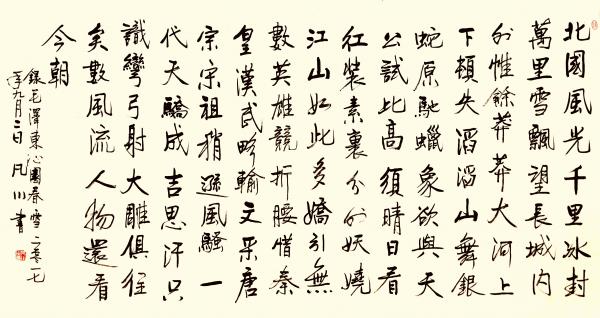 北國風光千里冰封
萬里雪飄望長城内
外惟餘莽莽大河上
下頓失滔滔山舞銀
蛇原馳蠟象欲與天
公試比高須晴日看
紅裝素裹分外妖嬈
江山如此多嬌引無
數英雄競折腰惜秦
皇漢武略輸文采唐
宗宋祖稍遜風騷一
代天驕成吉思汗只
識彎弓射大雕俱往
矣數風流人物還看
今朝
錄毛澤東沁園春雪二零一七
年九月二日凡川書